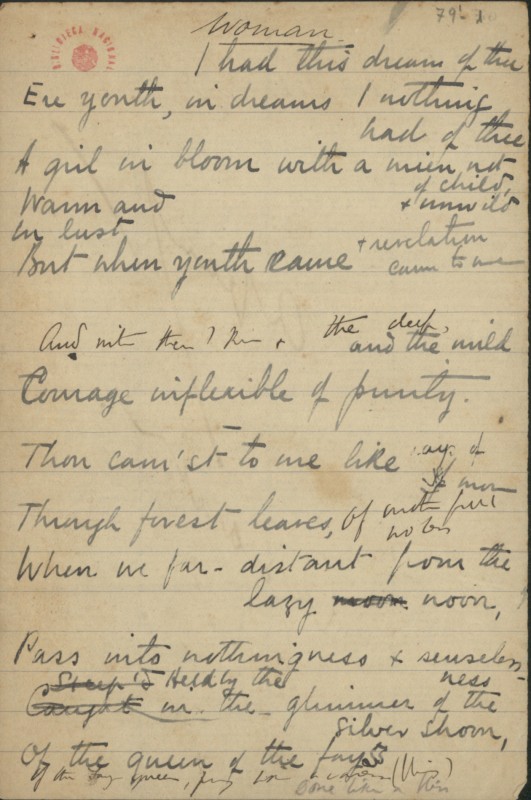 79-1
BIBLIOTECA NACIONAL
Woman.
I had this dream of thee
Ere youth, in dreams I nothing
had of thee
A girl in bloom with a mien not
of child,
Warm and + unwild
in lust
But when youth came + revelation
came to me
And with the deep,
and the mild
Courage inflexible of purity.
Thou cam'st to me like rays of
moon
Through forest leaves, of
When we far-distant from the
lazy moon noon,
Pass into nothingness + senseless-
ness
Steep'd Held by the
Caught in the glimmer of the
silver shoon,
Of the queen of the fays
of the fay queen,